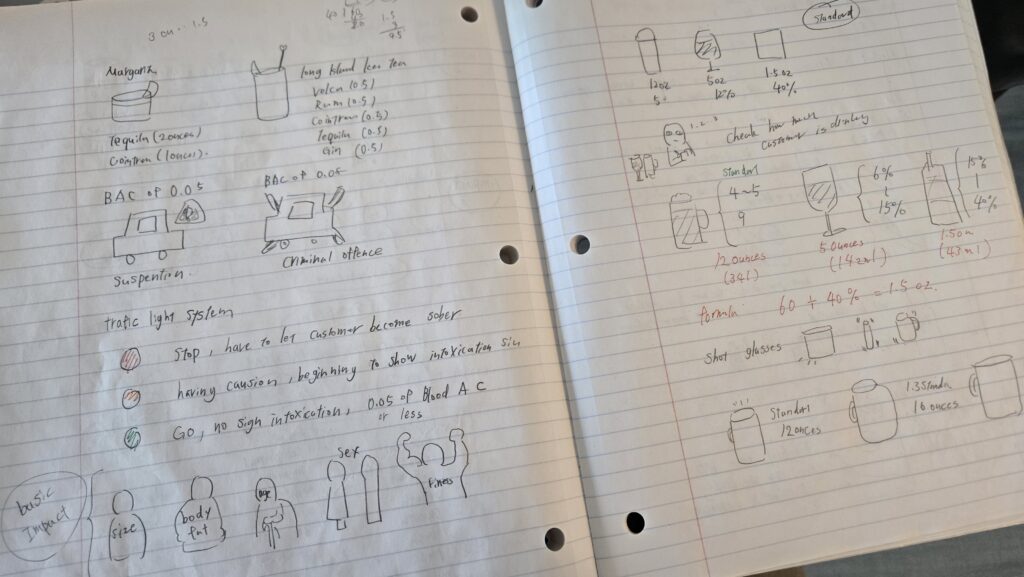 3 on .. 1.5
1.5
3
4.5
Margarita
Tequila (2 ounces)
Cointreau (1 ounces).
Long Island Ice Tea
Volca (0.5)
Rum (0.5)
Cointreau (0.5)
Tequila (0.5)
Gin (0.5)
BAC of 0.05
Suspention.
BAC of 0.08
Criminal offence
trafic light system
Stop, have to let customer become sober
having causion, beginning to show intoxication sin
Go, no sign intoxication, 0.05 of Blood A C
or less
basic
Impact
size
body
fat
age
Sex
Finess
Standard
12oz
5.
5oz
12%
1.5oz
40%
1. 2. 3
Check how much
customer is display
Standard
4~5
9
12 ounces
(341)
6%
15%
5 ounces
(142ml)
15%
40%
1.5on
(43ml)
formula 60 ÷ 40% = 1.5 oz.
Shot glasses
Standard
12 ounces
1.3 Standar
16 ounces